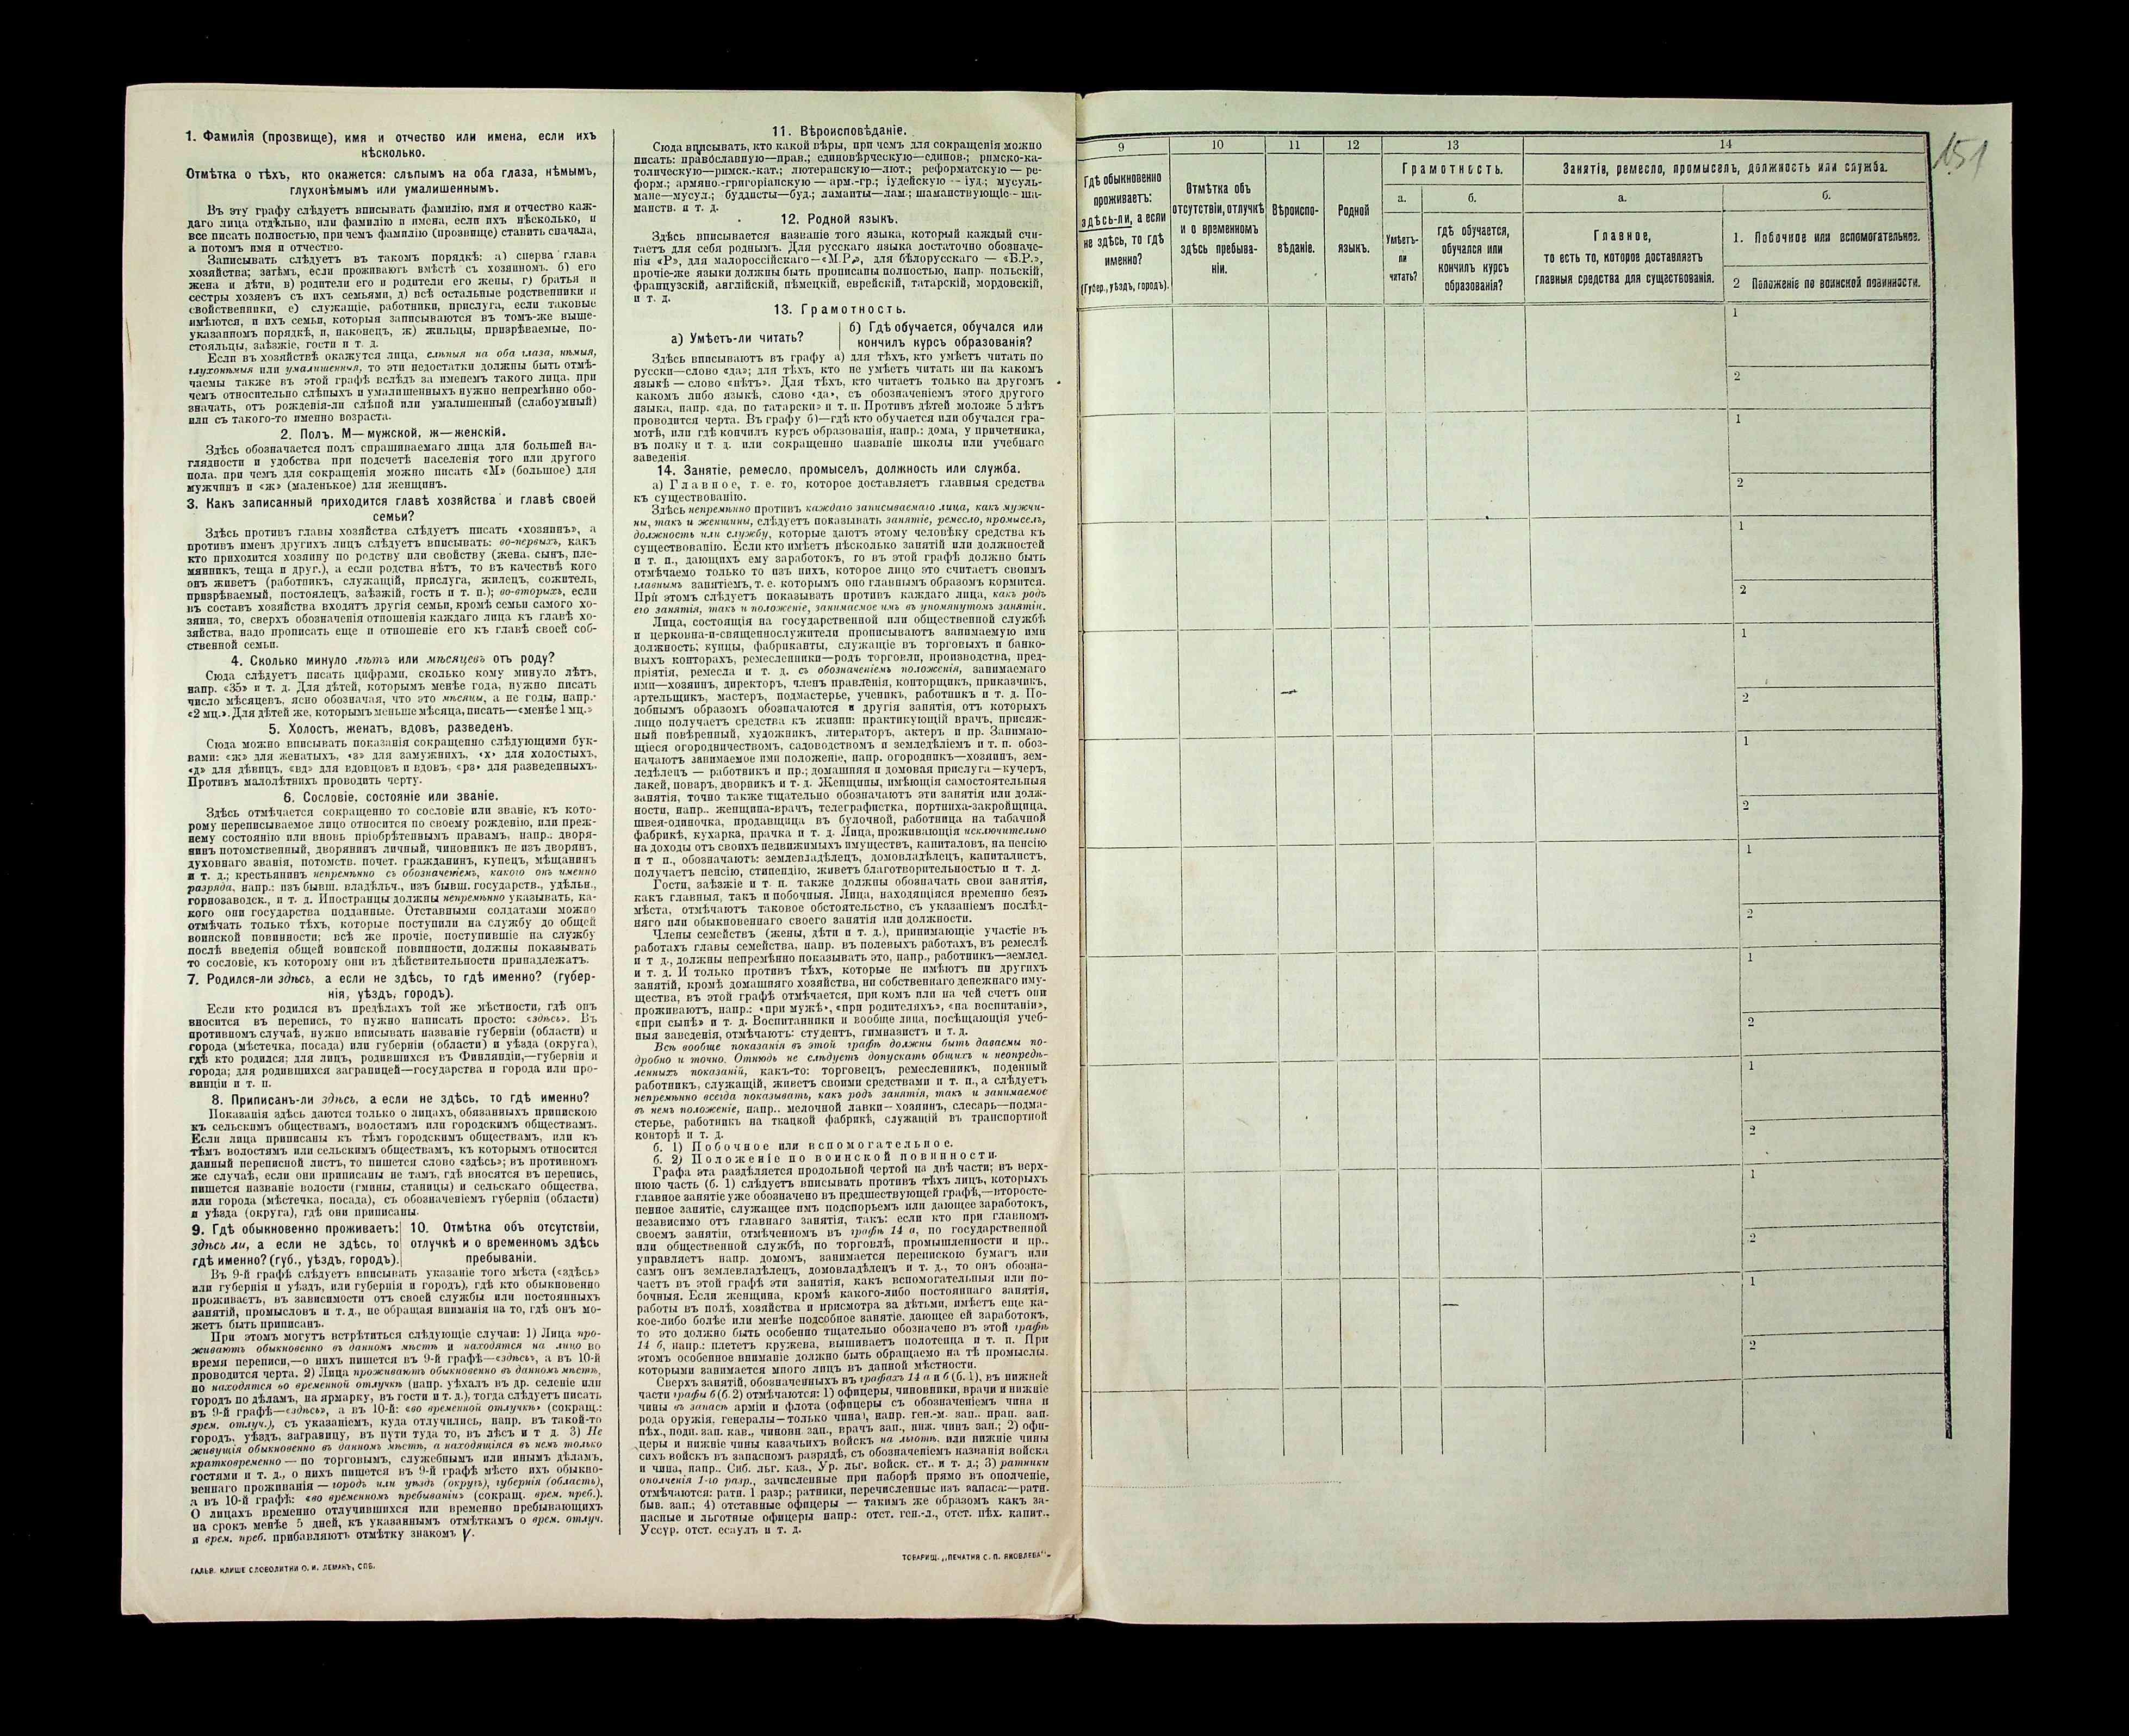 1. Фамилія (прозвище), имя и отчество или имена, если ихъ
нѣсколько.
Отмѣтка о тѣхъ, кто окажется: слѣпымъ на оба глаза, нѣмымъ,
глухонѣмымъ или умалишеннымъ.
Въ эту графу слѣдуетъ вписывать фамилію, имя и отчество каж-
даго лица отдѣльно, или фамилію и имена, если ихъ нѣсколько, и
все писать полностью, при чемъ фамилію (прозвище) ставить сначала,
а потомъ имя и отчество.
Записывать слѣдуетъ въ такомъ порядкѣ: а) сперва глава
хозяйства; затѣмъ, если проживаютъ вмѣстѣ съ хозяиномъ, б) его
жена и дѣти, в) родители его и родители его жены, г) братья и
сестры хозяевъ съ ихъ семьями, д) всѣ остальные родственники и
свойственники, е) служащіе, работники, прислуга, если таковые
имѣются, и ихъ семьи, которыя записываются въ томъ-же выше-
указанномъ порядкѣ, и, наконецъ, ж) жильцы, призрѣваемые, по-
стояльцы, заѣзжіе, гости и т. д.
Если въ хозяйствѣ окажутся лица, слѣпыя на оба глаза, нѣмыя,
глухонѣмыя или умалишенныя, то эти недостатки должны быть отмѣ-
чаемы также въ этой графѣ вслѣдъ за именемъ такого лица, при
чемъ относительно слѣпыхъ и умалишенныхъ нужно непремѣнно обо-
значать, отъ рожденія-ли слѣпой или умалишенный (слабоумный)
или съ такого-то именно возраста.
2. Полъ. М—мужской, ж—женскій.
Здѣсь обозначается полъ спрашиваемаго лица для большей на-
глядности и удобства при подсчетѣ населенія того или другого
пола, при чемъ для сокращенія можно писать «М» (большое) для
мужчинъ и «ж» (маленькое) для женщинъ.
3. Какъ записанный приходится главѣ хозяйства и главѣ своей
семьи?
Здѣсь противъ главы хозяйства слѣдуетъ писать «хозяинъ», а
противъ именъ другихъ лицъ слѣдуетъ вписывать: во-первыхъ, какъ
кто приходится хозяину по родству или свойству (жена, сынъ, пле-
мянникъ, теща и друг.), а если родства нѣтъ, то въ качествѣ кого
онъ живетъ (работникъ, служащій, прислуга, жилецъ, сожитель,
призрѣваемый, постоялецъ, заѣзжій, гость и т. п.); во-вторыхъ, если
въ составъ хозяйства входятъ другія семьи, кромѣ семьи самого хо-
зяина, то, сверхъ обозначенія отношенія каждаго лица къ главѣ хо-
зяйства, надо прописать еще и отношеніе его къ главѣ своей соб-
ственной семьи.
4. Сколько минуло лѣтъ или мѣсяцевъ отъ роду?
Сюда слѣдуетъ писать цифрами, сколько кому минуло лѣтъ,
напр. «35» и т. д. Для дѣтей, которымъ менѣе года, нужно писать
число мѣсяцевъ, ясно обозначая, что это мѣсяцы, а не годы, напр.
«2 мц.». Для дѣтей же, которымъ меньше мѣсяца, писать—«менѣе 1 мц.»
5. Холостъ, женатъ, вдовъ, разведенъ.
Сюда можно вписывать показанія сокращенно слѣдующими бук-
вами: «ж» для женатыхъ, «з» для замужнихъ, «х» для холостыхъ,
«д» для дѣвицъ, «вд» для вдовцовъ и вдовъ, «рз» для разведенныхъ.
Противъ малолѣтнихъ проводить черту.
6. Сословіе, состояніе или званіе.
Здѣсь отмѣчается сокращенно то сословіе или званіе, къ кото-
рому переписываемое лицо относится по своему рожденію, или преж-
нему состоянію или вновь пріобрѣтеннымъ правамъ, напр.: дворя-
нинъ потомственный, дворянинъ личный, чиновникъ не изъ дворянъ,
духовнаго званія, потомств. почет. гражданинъ, купецъ, мѣщанинъ
и т. д.; крестьянинъ непремѣнно съ обозначеніемъ, какого онъ именно
разряда, напр.: изъ бывш. владѣльч., изъ бывш. государств., удѣльн.,
горнозаводск., и т. д. Иностранцы должны непремѣнно указывать, ка-
кого они государства подданные. Отставными солдатами можно
отмѣчать только тѣхъ, которые поступили на службу до общей
воинской повинности; всѣ же прочіе, поступившіе на службу
послѣ введенія общей воинской повинности, должны показывать
то сословіе, къ которому они въ дѣйствительности принадлежатъ.
7. Родился-ли здѣсь, а если не здѣсь, то гдѣ именно? (губер-
нія, уѣздъ, городъ).
Если кто родился въ предѣлахъ той же мѣстности, гдѣ онъ
вносится въ перепись, то нужно написать просто: «здѣсь». Въ
противномъ случаѣ, нужно вписывать названіе губерніи (области) и
города (мѣстечка, посада) или губерніи (области) и уѣзда (округа),
гдѣ кто родился; для лицъ, родившихся въ Финляндіи,—губерніи и
города; для родившихся заграницей—государства и города или про-
винціи и т. п.
8. Приписанъ-ли здѣсь, а если не здѣсь, то гдѣ именно?
Показанія здѣсь даются только о лицахъ, обязанныхъ припискою
къ сельскимъ обществамъ, волостямъ или городскимъ обществамъ.
Если лица приписаны къ тѣмъ городскимъ обществамъ, или къ
тѣмъ волостямъ или сельскимъ обществамъ, къ которымъ относится
данный переписной листъ, то пишется слово «здѣсь»; въ противномъ
же случаѣ, если они приписаны не тамъ, гдѣ вносятся въ перепись,
пишется названіе волости (гмины, станицы) и сельскаго общества,
или города (мѣстечка, посада), съ обозначеніемъ губерніи (области)
и уѣзда (округа), гдѣ они приписаны.
9. Гдѣ обыкновенно проживаетъ:
здѣсь ли, а если не здѣсь, то
гдѣ именно? (губ., уѣздъ, городъ).
10. Отмѣтка объ отсутствіи,
отлучкѣ и о временномъ здѣсь
пребываніи.
Въ 9-й графѣ слѣдуетъ вписывать указаніе того мѣста («здѣсь»
или губернія и уѣздъ, или губернія и городъ), гдѣ кто обыкновенно
проживаетъ, въ зависимости отъ своей службы или постоянныхъ
занятій, промысловъ и т. д., не обращая вниманія на то, гдѣ онъ мо-
жетъ быть приписанъ.
При этомъ могутъ встрѣтиться слѣдующіе случаи: 1) Лица про-
живаютъ обыкновенно въ данномъ мѣстѣ и находятся на лицо во
время переписи,—о нихъ пишется въ 9-й графѣ—«здѣсь», а въ 10-й
проводится черта. 2) Лица проживаютъ обыкновенно въ данномъ мѣстѣ,
но находятся во временной отлучкѣ (напр. уѣхалъ въ др. селеніе или
городъ по дѣламъ, на ярмарку, въ гости и т. д.), тогда слѣдуетъ писать
въ 9-й графѣ—«здѣсь», а въ 10-й: «во временной отлучкѣ» (сокращ.:
врем. отлуч.), съ указаніемъ, куда отлучились, напр. въ такой-то
городъ, уѣздъ, заграницу, въ пути туда то, въ лѣсъ и т д. 3) Не
живущія обыкновенно въ данномъ мѣстѣ, а находящіяся въ немъ только
кратковременно — по торговымъ, служебнымъ или инымъ дѣламъ,
гостями и т. д., о нихъ пишется въ 9-й графѣ мѣсто ихъ обыкно-
веннаго проживанія — городъ или уѣздъ (округъ), губернія (область),
а въ 10-й графѣ: «во временномъ пребываніи» (сокращ. врем. преб.).
О лицахъ временно отлучившихся или временно пребывающихъ
на срокъ менѣе 5 дней, къ указаннымъ отмѣткамъ о врем. отлуч.
и врем. преб. прибавляютъ отмѣтку знакомъ V.
ГАЛЬВ. КЛИШЕ СЛОВОЛИТНИ О. И. ЛЕМАНЪ, СПБ.
11. Вѣроисповѣданіе.
Сюда вписывать, кто какой вѣры, при чемъ для сокращенія можно
писать: православную—прав.; единовѣрческую—единов.; римско-ка-
толическую—римск.-кат.; лютеранскую—лют.; реформатскую — ре-
форм.; армяно-григоріанскую — арм.-гр.; іудейскую — іуд.; мусуль-
мане—мусул.; буддисты—буд.; ламаиты—лам.; шаманствующіе—ша-
манств. и т. д.
12. Родной языкъ.
Здѣсь вписывается названіе того языка, который каждый счи-
таетъ для себя роднымъ. Для русскаго языка достаточно обозначе-
нія «Р», для малороссійскаго—«М.Р.», для бѣлорусскаго — «Б.Р.»,
прочіе-же языки должны быть прописаны полностью, напр. польскій,
французскій, англійскій, нѣмецкій, еврейскій, татарскій, мордовскій,
и т. д.
13. Грамотность.
а) Умѣетъ-ли читать?
б) Гдѣ обучается, обучался или
кончилъ курсъ образованія?
Здѣсь вписываютъ въ графу а) для тѣхъ, кто умѣетъ читать по
русски—слово «да»; для тѣхъ, кто не умѣетъ читать ни на какомъ
языкѣ — слово «нѣтъ». Для тѣхъ, кто читаетъ только на другомъ
какомъ либо языкѣ, слово «да», съ обозначеніемъ этого другого
языка, напр. «да, по татарски» и т. п. Противъ дѣтей моложе 5 лѣтъ
проводится черта. Въ графу б)—гдѣ кто обучается или обучался гра-
мотѣ, или гдѣ кончилъ курсъ образованія, напр.: дома, у причетника,
въ полку и т. д. или сокращенно названіе школы или учебнаго
заведенія.
14. Занятіе, ремесло, промыселъ, должность или служба.
а) Главное, т. е. то, которое доставляетъ главныя средства
къ существованію.
Здѣсь непремѣнно противъ каждаго записываемаго лица, какъ мужчи-
ны, такъ и женщины, слѣдуетъ показывать занятіе, ремесло, промыселъ,
должность или службу, которые даютъ этому человѣку средства къ
существованію. Если кто имѣетъ нѣсколько занятій или должностей
и т. п., дающихъ ему заработокъ, то въ этой графѣ должно быть
отмѣчаемо только то изъ нихъ, которое лицо это считаетъ своимъ
главнымъ занятіемъ, т. е. которымъ оно главнымъ образомъ кормится.
При этомъ слѣдуетъ показывать противъ каждаго лица, какъ родъ
его занятія, такъ и положеніе, занимаемое имъ въ упомянутомъ занятіи.
Лица, состоящія на государственной или общественной службѣ
и церковно-и-священнослужители прописываютъ занимаемую ими
должность; купцы, фабриканты, служащіе въ торговыхъ и банко-
выхъ конторахъ, ремесленники—родъ торговли, производства, пред-
пріятія, ремесла и т. д. съ обозначеніемъ положенія, занимаемаго
ими—хозяинъ, директоръ, членъ правленія, конторщикъ, приказчикъ,
артельщикъ, мастеръ, подмастерье, ученикъ, работникъ и т. д. По-
добнымъ образомъ обозначаются и другія занятія, отъ которыхъ
лицо получаетъ средства къ жизни: практикующій врачъ, присяж-
ный повѣренный, художникъ, литераторъ, актеръ и пр. Занимаю-
щіеся огородничествомъ, садоводствомъ и земледѣліемъ и т. п. обоз-
начаютъ занимаемое ими положеніе, напр. огородникъ—хозяинъ, зем-
ледѣлецъ — работникъ и пр.; домашняя и домовая прислуга—кучеръ,
лакей, поваръ, дворникъ и т. д. Женщины, имѣющія самостоятельныя
занятія, точно также тщательно обозначаютъ эти занятія или долж-
ности, напр.. женщина-врачъ, телеграфистка, портниха-закройщица,
швея-одиночка, продавщица въ булочной, работница на табачной
фабрикѣ, кухарка, прачка и т. д. Лица, проживающія исключительно
на доходы отъ своихъ недвижимыхъ имуществъ, капиталовъ, на пенсію
и т п., обозначаютъ: землевладѣлецъ, домовладѣлецъ, капиталистъ,
получаетъ пенсію, стипендію, живетъ благотворительностью и т. д.
Гости, заѣзжіе и т. п. также должны обозначать свои занятія,
какъ главныя, такъ и побочныя. Лица, находящіяся временно безъ
мѣста, отмѣчаютъ таковое обстоятельство, съ указаніемъ послѣд-
няго или обыкновеннаго своего занятія или должности.
Члены семействъ (жены, дѣти и т. д.), принимающіе участіе въ
работахъ главы семейства, напр. въ полевыхъ работахъ, въ ремеслѣ
и т д., должны непремѣнно показывать это, напр., работникъ—землед.
и т. д. И только противъ тѣхъ, которые не имѣютъ ни другихъ
занятій, кромѣ домашняго хозяйства, ни собственнаго денежнаго иму-
щества, въ этой графѣ отмѣчается, при комъ или на чей счетъ они
проживаютъ, напр.: «при мужѣ», «при родителяхъ», «на воспитаніи»,
«при сынѣ» и т. д. Воспитанники и вообще лица, посѣщающія учеб-
ныя заведенія, отмѣчаютъ: студентъ, гимназистъ и т. д.
Всѣ вообще показанія въ этой графѣ должны быть даваемы по-
дробно и точно. Отнюдь не слѣдуетъ допускать общихъ и неопредѣ-
ленныхъ показаній, какъ-то: торговецъ, ремесленникъ, поденный
работникъ, служащій, живетъ своими средствами и т. п., а слѣдуетъ
непремѣнно всегда показывать, какъ родъ занятія, такъ и занимаемое
въ немъ положеніе, напр.. мелочной лавки—хозяинъ, слесарь—подма-
стерье, работникъ на ткацкой фабрикѣ, служащій въ транспортной
конторѣ и т. д.
б. 1) Побочное или вспомогательное.
б. 2) Положеніе по воинской повинности.
Графа эта раздѣляется продольной чертой на двѣ части; въ верх-
нюю часть (б. 1) слѣдуетъ вписывать противъ тѣхъ лицъ, которыхъ
главное занятіе уже обозначено въ предшествующей графѣ,—второсте-
пенное занятіе, служащее имъ подспорьемъ или дающее заработокъ,
независимо отъ главнаго занятія, такъ: если кто при главномъ
своемъ занятіи, отмѣченномъ въ графѣ 14 а, по государственной
или общественной службѣ, по торговлѣ, промышленности и пр..
управляетъ напр. домомъ, занимается перепискою бумагъ или
самъ онъ землевладѣлецъ, домовладѣлецъ и т. д., то онъ обозна-
чаетъ въ этой графѣ эти занятія, какъ вспомогательныя или по-
бочныя. Если женщина, кромѣ какого-либо постояннаго занятія,
работы въ полѣ, хозяйства и присмотра за дѣтьми, имѣетъ еще ка-
кое-либо болѣе или менѣе подсобное занятіе, дающее ей заработокъ,
то это должно быть особенно тщательно обозначено въ этой графѣ
14 б, напр.: плететъ кружева, вышиваетъ полотенца и т. п. При
этомъ особенное вниманіе должно быть обращаемо на тѣ промыслы,
которыми занимается много лицъ въ данной мѣстности.
Сверхъ занятій, обозначенныхъ въ графахъ 14 а и б (б. 1), въ нижней
части графы б (б. 2) отмѣчаются: 1) офицеры, чиновники, врачи и нижніе
чины въ запасѣ арміи и флота (офицеры съ обозначеніемъ чина и
рода оружія, генералы—только чина), напр. ген.-м. зап.. прап. зап.
пѣх., подп. зап. кав., чиновн. зап., врачъ зап., ниж. чинъ зап.; 2) офи-
церы и нижніе чины казачьихъ войскъ на льготѣ, или нижніе чины
сихъ войскъ въ запасномъ разрядѣ, съ обозначеніемъ названія войска
и чина, напр.. Сиб. льг. каз., Ур. льг. войск. ст.. и т. д.; 3) ратники
ополченія 1-го разр., зачисленные при наборѣ прямо въ ополченіе,
отмѣчаются: ратн. 1 разр.; ратники, перечисленные изъ запаса:—ратн.
быв. зап.; 4) отставные офицеры — такимъ же образомъ какъ за-
пасные и льготные офицеры напр.: отст. ген.-л., отст. пѣх. капит..,
Уссур. отст. есаулъ и т. д.
ТОВАРИЩ. „ПЕЧАТНЯ С. П. ЯКОВЛЕВА"
151
9 10 11 12 13 14
Гдѣ обыкновенно
проживаетъ:
здѣсь-ли, а если
не здѣсь, то гдѣ
именно?
(Губер., уѣздъ, городъ).
Отмѣтка объ
отсутствіи, отлучкѣ
и о временномъ
здѣсь пребыва-
ніи.
Вѣроиспо-
вѣданіе.
Родной
языкъ.
Грамотность.
а.
Умѣетъ-
ли
читать?
б.
гдѣ обучается,
обучался или
кончилъ курсъ
образованія?
Занятіе, ремесло, промыселъ, должность или служба.
а.
Главное,
то есть то, которое доставляетъ
главныя средства для существованія.
б.
1. Побочное или вспомогательное.
2 Положеніе по воинской повинности.
1
2
1
2
1
2
1
2
1
2
1
2
1
2
1
2
1
2
1
2